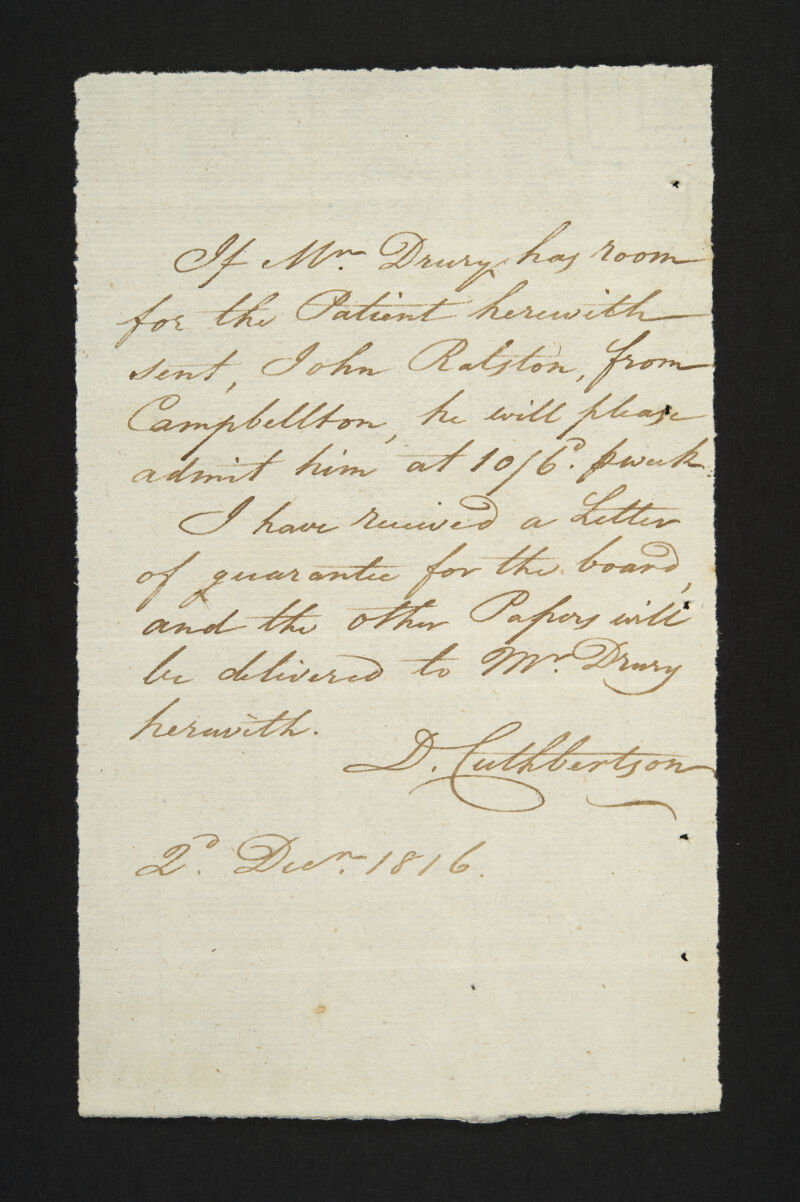 If Mr. Drury has room
for the Patient herewith
sent, John Ralston, from
Campbellton, he will please
admit him at 10/6d. p week
I have received a Letter
of guarantee for the board,
and the other Papers will
be delivered to Mr. Drury
herewith.
D. Cuthbertson
2d. Decr. 1816.